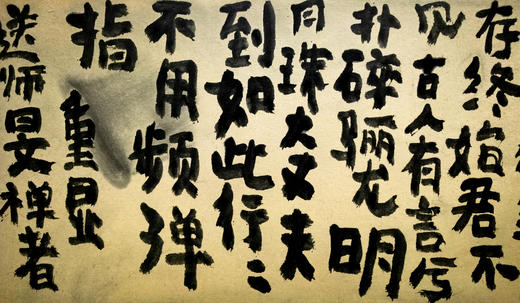 存终始君不
见古人有言兮
扑碎骊龙明
月珠大丈夫
到如此行〻
不用频弹
指
重显
送师旻禅者